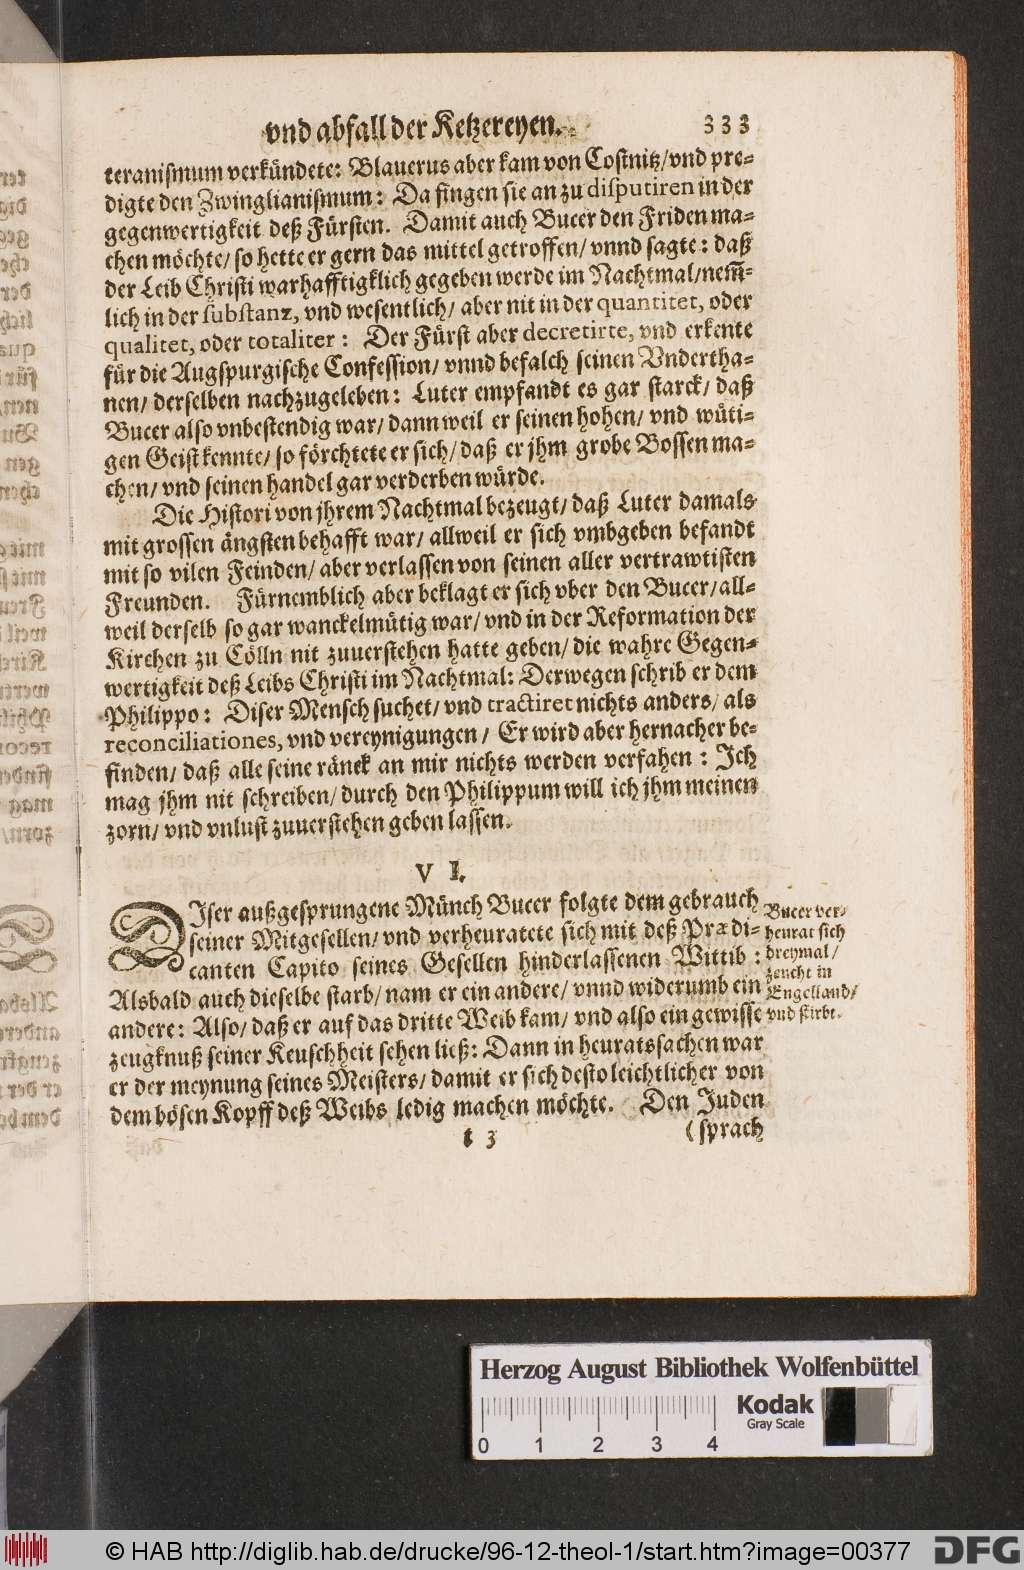 vnd abfall der Ketzereyen. 333
teranismum verkündete: Blauerus aber kam von Costnitz/vnd pre-
digte den Zwinglianismum: Da fingen sie an zu disputiren in der
gegenwertigkeit deß Fürsten. Damit auch Bucer den Friden ma-
chen möchte/ so hette er gern das mittel getroffen/ vnnd sagte: daß
der Leib Christi warhafftigklich gegeben werde im Nachtmal/nem̄-
lich in der substanz, vnd wesentlich/ aber nit in der quantitet, oder
qualitet, oder totaliter: Der Fürst aber decretirte, vnd erkente
für die Augspurgische Confession/ vnnd befalch seinen Vndertha-
nen/ derselben nachzugeleben: Luter empfandt es gar starck/ daß
Bucer also vnbestendig war/ dann weil er seinen hohen/ vnd wüti-
gen Geist kennte/ so förchtete er sich/ daß er jhm grobe Bossen ma-
chen/ vnd seinen handel gar verderben würde.
Die Histori von jhrem Nachtmal bezeugt/ daß Luter damals
mit grossen ängsten behafft war/ allweil er sich vmbgeben befandt
mit so vilen Feinden/ aber verlassen von seinen aller vertrawtisten
Freunden. Fürnemblich aber beklagt er sich vber den Bucer/ all-
weil derselb so gar wanckelmütig war/ vnd in der Reformation der
Kirchen zu Cölln nit zuuerstehen hatte geben/ die wahre Gegen-
wertigkeit deß Leibs Christi im Nachtmal: Derwegen schrib er dem
Philippo: Diser Mensch suchet/ vnd tractiret nichts anders/ als
reconciliationes, vnd vereynigungen/ Er wird aber hernacher be-
finden/ daß alle seine ränck an mir nichts werden verfahen: Ich
mag jhm nit schreiben/ durch den Philippum will ich jhm meinen
zorn/ vnd vnlust zuuerstehen geben lassen.
V I.
DIser außgesprungene Münch Bucer folgte dem gebrauch
seiner Mitgesellen/ vnd verheuratete sich mit deß Prædi-
canten Capito seines Gesellen hinderlassenen Wittib:
Alsbald auch dieselbe starb/ nam er ein andere/ vnnd widerumb ein
andere: Also/ daß er auf das dritte Weib kam/ vnd also ein gewisse
zeugknuß seiner Keuschheit sehen ließ: Dann in heuratssachen war
er der meynung seines Meisters/ damit er sich desto leichtlicher von
dem bösen Kopff deß Weibs ledig machen möchte. Den Juden
t 3 (sprach
Bucer ver-
heurat sich
dreymal/
zeucht in
Engelland/
vnd stirbt.
Herzog August Bibliothek Wolfenbüttel
Kodak
Gray Scale
0 1 2 3 4
© HAB http://diglib.hab.de/drucke/96-12-theol-1/start.htm?image=00377
DFG